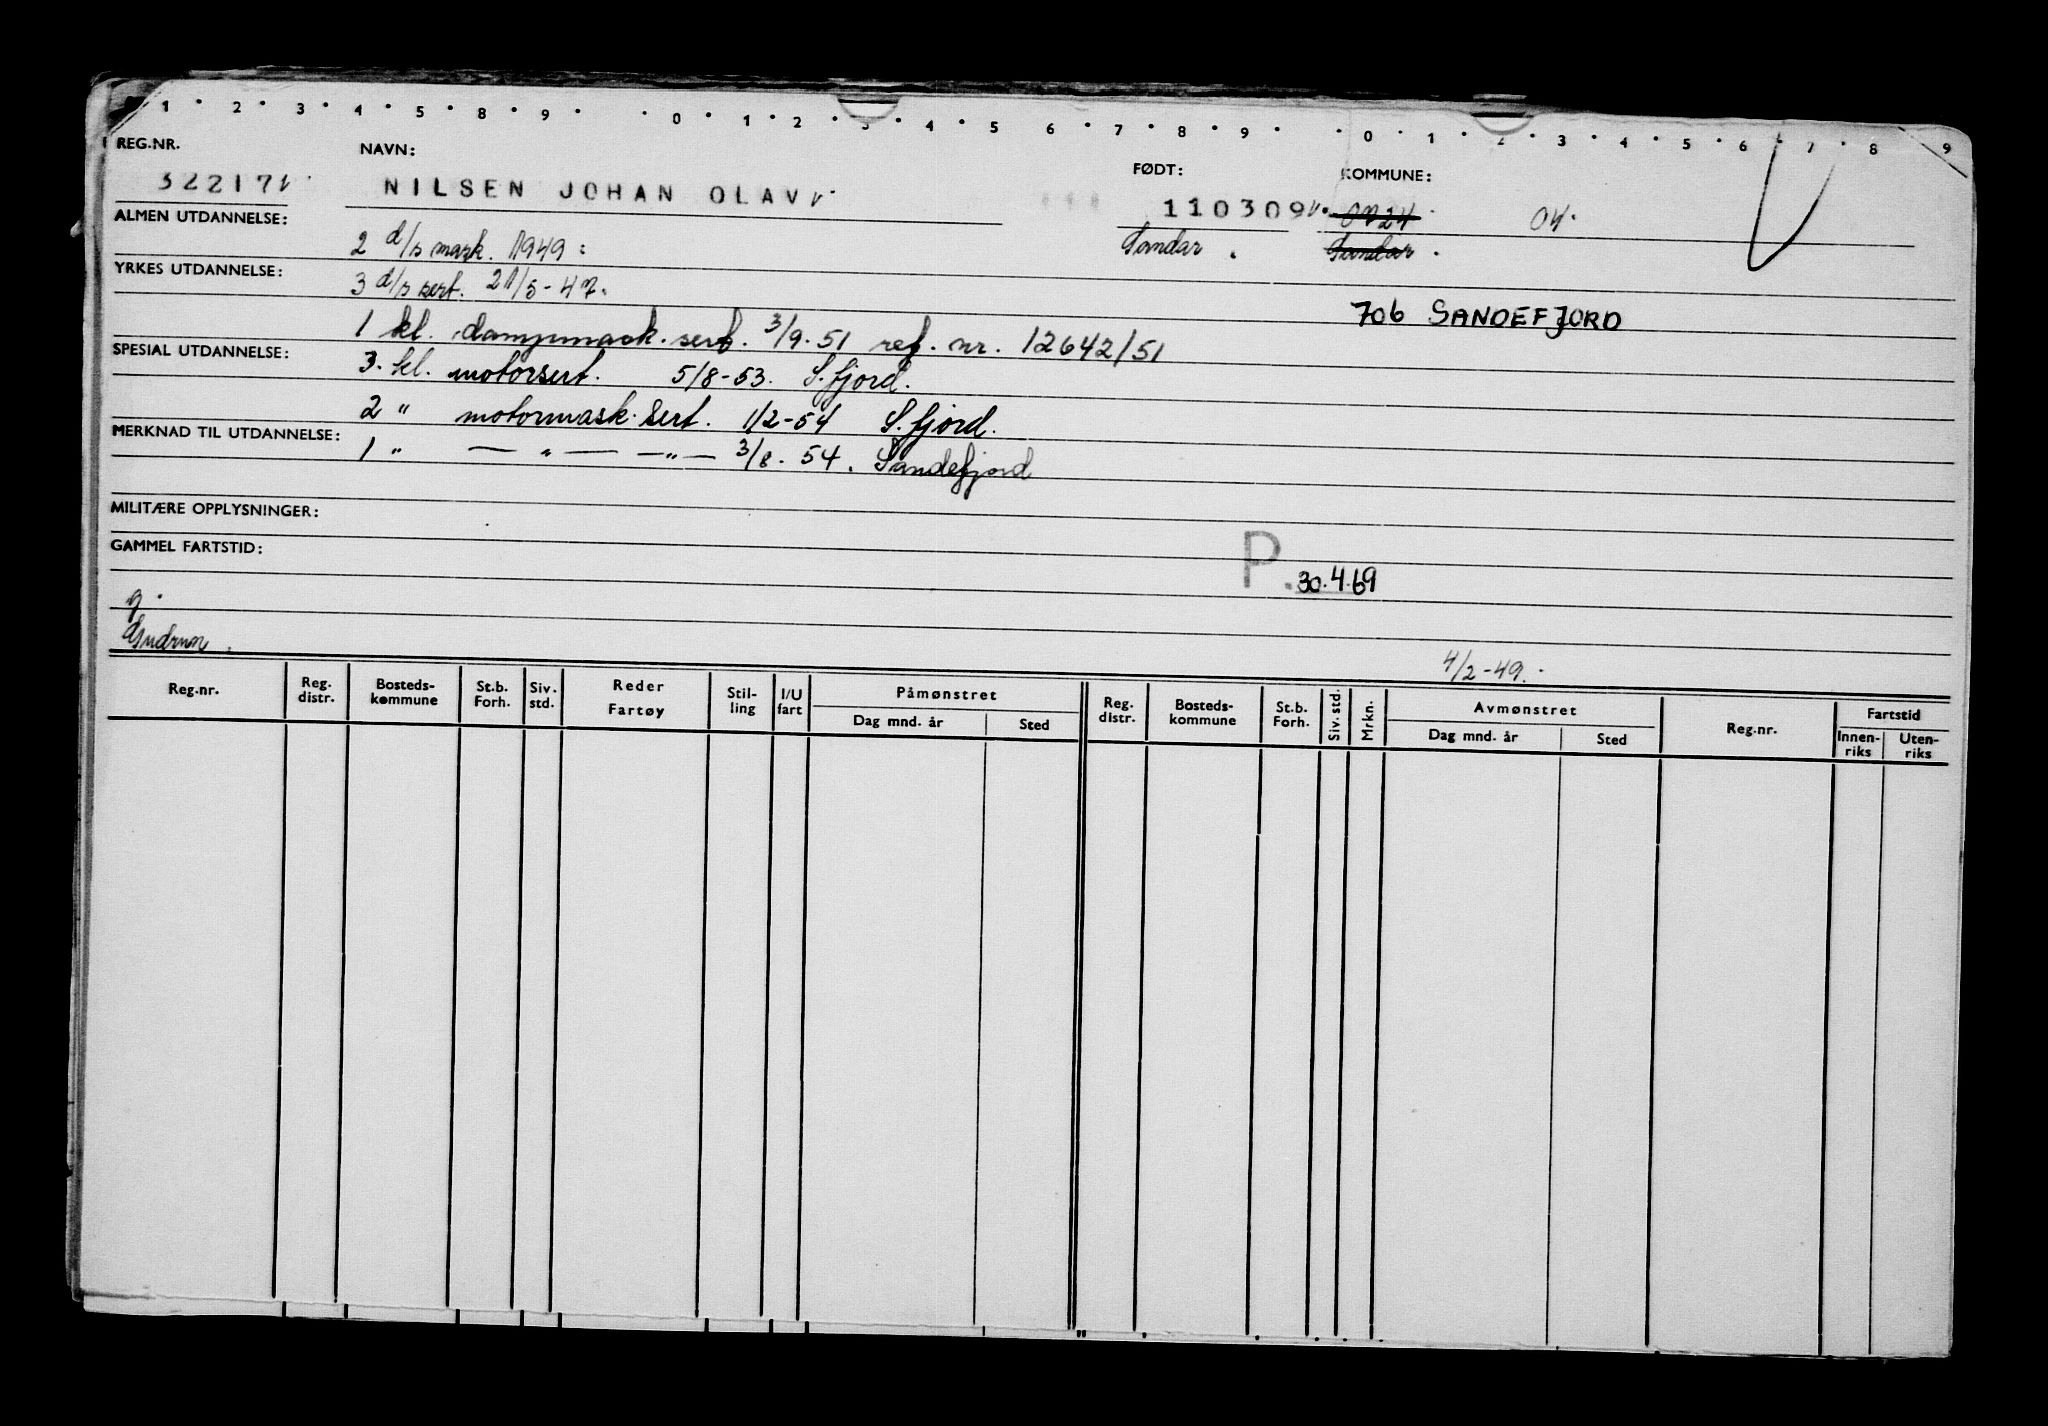 1 · 2 · 3 · 4 · 5 · 8 · 9 · · 0 · 1 · 2 · 3 · 4 · 5 6 · 7 · 8 · 9 · · 0 · 1 · 2 · 3 · 4 · 5 · 6 · 7 · 8 9
REG.NR. NAVN: FØDT: KOMMUNE:
322171 NILSEN JOHAN OLAV 110309 0724 04.
ALMEN UTDANNELSE: 2 d/s mask. 1949: Sandar . Sandar .
YRKES UTDANNELSE: 3 d/s sert. 21/5-47.
706 SANDEFJORD
1 kl. dampmask. sert. 3/9.51 ref. nr. 12642/51
SPESIAL UTDANNELSE: 3. kl. motorsert. 5/8-53. S.fjord.
2 " motormask. sert. 1/2-54 S.fjord.
MERKNAD TIL UTDANNELSE: 1 " — " — — " — 3/8. 54. Sandefjord
MILITÆRE OPPLYSNINGER:
GAMMEL FARTSTID:
P. 30.4.69
g.
Gudrun .
4/2-49.
Reg.nr. Reg. distr. Bosteds- kommune St.b. Forh. Siv. std. Reder Fartøy Stil- ling I/U fart Påmønstret Dag mnd. år Sted Reg. distr. Bosteds- kommune St.b. Forh. Siv. std. Mrkn. Avmønstret Dag mnd. år Sted Reg.nr. Fartstid Innen- riks Uten- riks